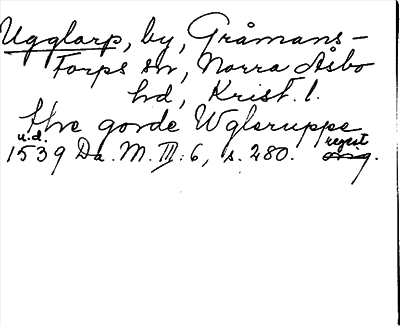 Ugglarp, by, Gråmans-
Torps sn, Norra Åsbo
hd, Krist. l.
thre gorde Wglsruppe
u.d. regist
1539 Da. M. III: 6, s. 280. orig.